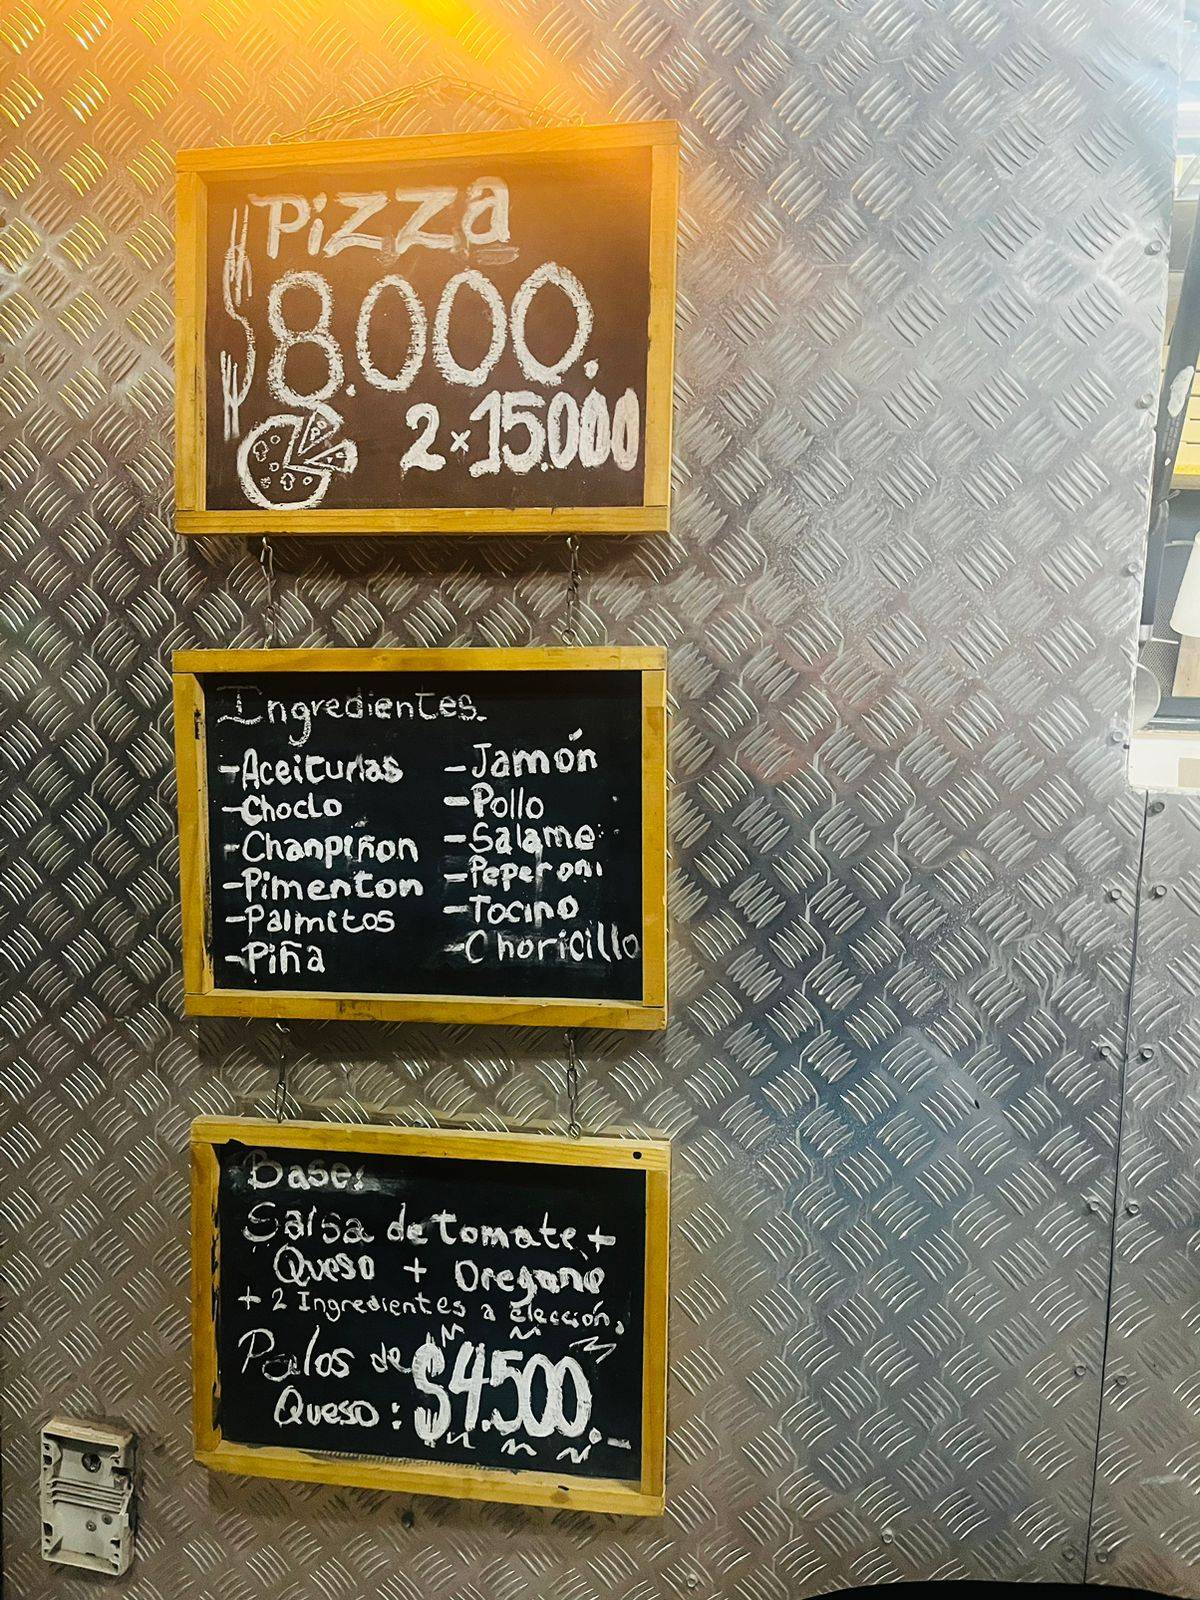 Pizza
$8.000.
2x15.000
Ingredientes.
-Aceitunas
-Choclo
-Chanpiñon
-Pimenton
-Palmitos
-Piña
-Jamón
-Pollo
-Salame
-Peperoni
-Tocino
-Choricillo
Base:
Salsa de tomate +
Queso + Oregano
+ 2 Ingredientes a elección.
Palos de
Queso: $4.500.-